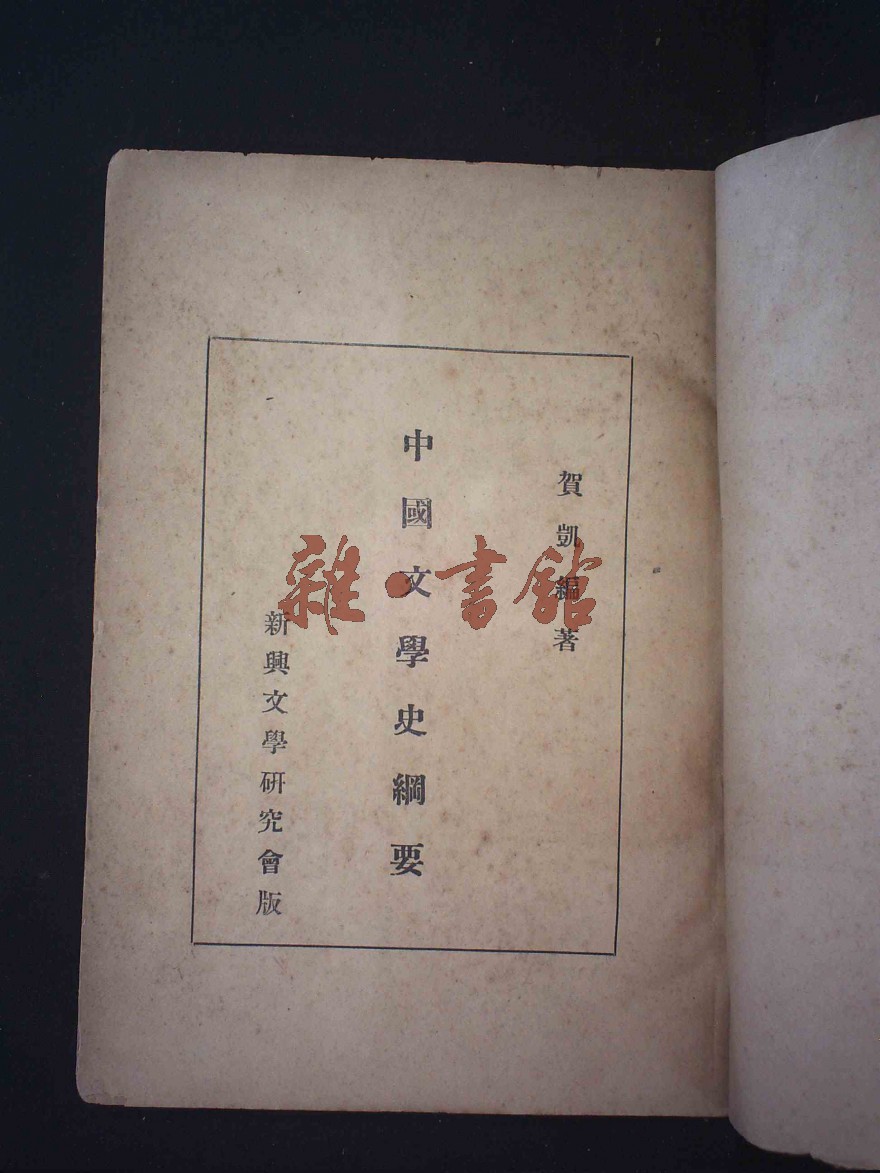 賀凱編著
中國文學史綱要
新興文學研究會版
雜·書館